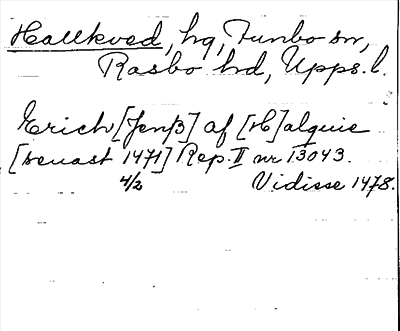 Hallkved, hg, Funbo sn,
Rasbo hd, Upps. l.
Erich [Jenß] af [H]alquie
[senast 1471] Rep. II nr 13043.
4/2 Vidisse 1478.